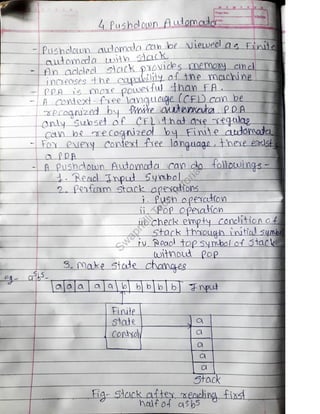 4. Pushdown Automata
- Pushdown automata can be viewed as Finite
automata with stack.
- An added stack provides memory and
increases the capability of the machine
- PDA is more powerful than FA.
- A context free language (CFL) can be
recognized by finite automata PDA
only subset of CFL that are regular
can be recognized by Finite automata
- For every context free language, there exist
a PDA
- A Pushdown Automata can do followings -
1. Read Input symbol
2. Perform stack operations
i. Push operation
ii. Pop operation
iii. check empty condition of
stack through initial symbol
iv. Read top symbol of stack
without POP
3. Make state changes
eg- a⁵b⁵-
a a a a a b b b b b Input
Finite
State
Control
a
a
a
a
a
Stack
Fig- Stack after reading first
half of a⁵b⁵